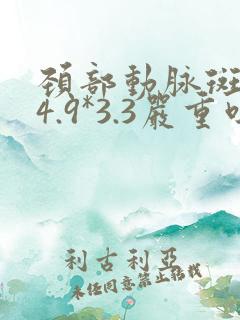 頚部動脉斑
4.9*3.3嚴重
利古利亞
未经同意禁止转载